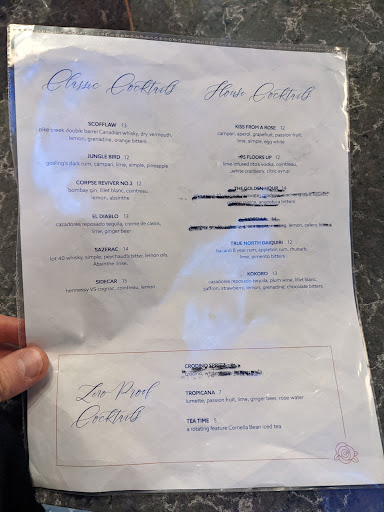 Classic Cocktails
SCOFFLAW 13
pike creek double barrel Canadian whisky, dry vermouth,
lemon, grenadine, orange bitters
JUNGLE BIRD 12
gosling's dark rum, campari, lime, simple, pineapple
CORPSE REVIVER NO.2 12
bombay gin, lillet blanc, cointreau,
lemon, absinthe
EL DIABLO 13
cazadores reposado tequila, creme de cassis,
lime, ginger beer
SAZERAC 14
lot 40 whisky, simple, peychaud's bitter, lemon oils,
Absinthe rinse,
SIDECAR 15
hennessy VS cognac, cointreau, lemon
House Cocktails
KISS FROM A ROSE 12
campari, aperol, grapefruit, passion fruit,
lime, simple, egg white
FLOORS UP 12
lime-infused tito's vodka, cointreau,
white cranberry, citric syrup
THE GOLDEN HOUR 14
angostura bitters
lemon, celery bitters
TRUE NORTH DAIQUIRI 12
bacardi 8 year rum, appleton rum, rhubarb,
lime, pimento bitters
KOKORO 13
cazadores reposado tequila, plum wine, lillet blanc,
saffron, strawberry, lemon, grenadine, chocolate bitters
Zero Proof
Cocktails
CRODINO SPRITZ
TROPICANA 7
lumette, passion fruit, lime, ginger beer, rose water
TEA TIME 5
a rotating feature Cornelia Bean iced tea